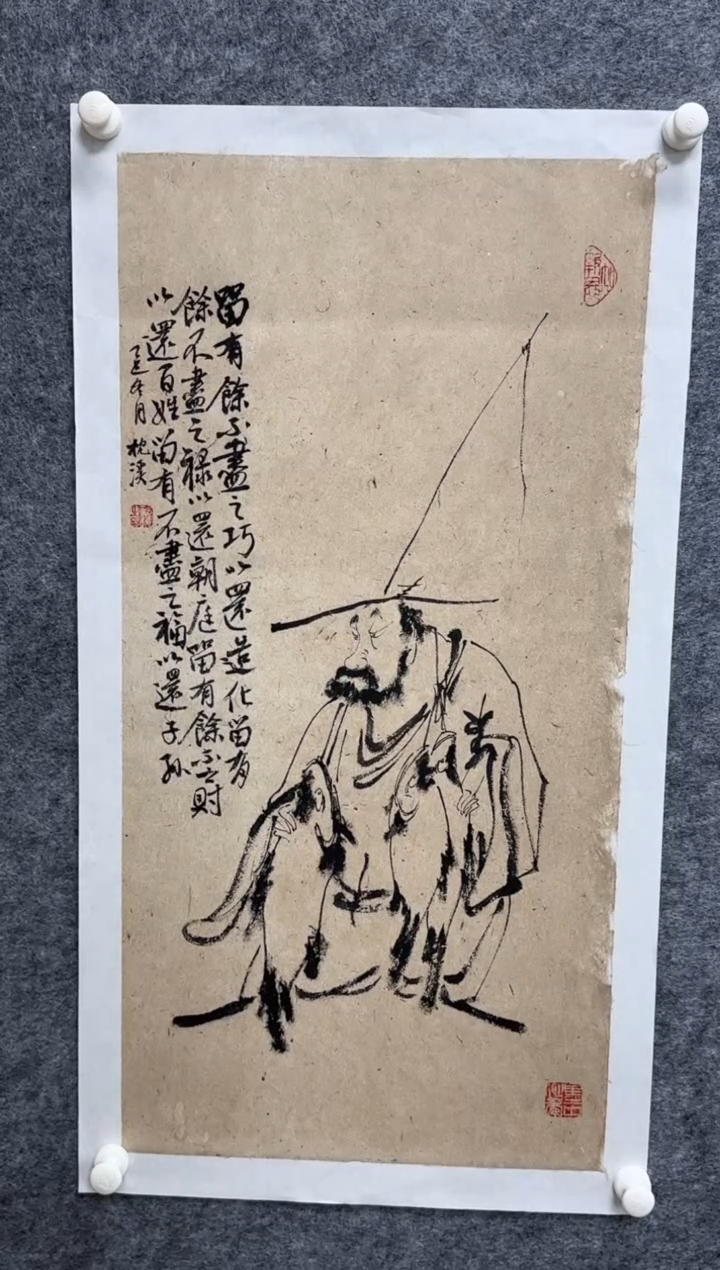 留有餘不盡之巧以還造化留有
餘不盡之禄以還朝庭留有餘不之財
以還百姓留有不盡之福以還子孫
乙巳冬月 枕溪